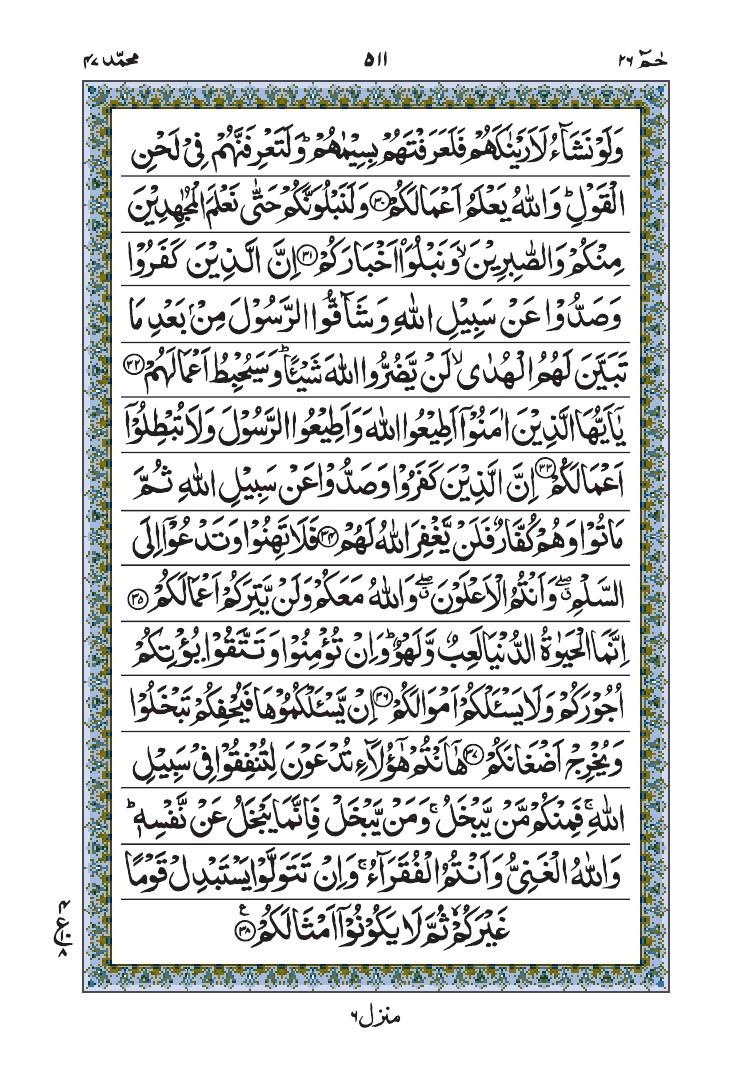 حٰمٓ ۲۶ ۵۱۱ محمّد ۴۷
وَلَوْ نَشَآءُ لَاَرَيْنٰكَهُمْ فَلَعَرَفْتَهُمْ بِسِيْمٰهُمْ ؕ وَلَتَعْرِفَنَّهُمْ فِىْ لَحْنِ
الْقَوْلِ ؕ وَاللّٰهُ يَعْلَمُ اَعْمَالَكُمْ ﴿۳۰﴾ وَلَنَبْلُوَنَّكُمْ حَتّٰى نَعْلَمَ الْمُجٰهِدِيْنَ
مِنْكُمْ وَالصّٰبِرِيْنَ ۙ وَنَبْلُوَا۟ اَخْبَارَكُمْ ﴿۳۱﴾ اِنَّ الَّذِيْنَ كَفَرُوْا
وَصَدُّوْا عَنْ سَبِيْلِ اللّٰهِ وَشَآقُّوا الرَّسُوْلَ مِنْۢ بَعْدِ مَا
تَبَيَّنَ لَهُمُ الْهُدٰى ۙ لَنْ يَّضُرُّوا اللّٰهَ شَيْـًٔا ؕ وَسَيُحْبِطُ اَعْمَالَهُمْ ﴿۳۲﴾
يٰۤاَيُّهَا الَّذِيْنَ اٰمَنُوْۤا اَطِيْعُوا اللّٰهَ وَاَطِيْعُوا الرَّسُوْلَ وَلَا تُبْطِلُوْۤا
اَعْمَالَكُمْ ﴿۳۳﴾ اِنَّ الَّذِيْنَ كَفَرُوْا وَصَدُّوْا عَنْ سَبِيْلِ اللّٰهِ ثُمَّ
مَاتُوْا وَهُمْ كُفَّارٌ فَلَنْ يَّغْفِرَ اللّٰهُ لَهُمْ ﴿۳۴﴾ فَلَا تَهِنُوْا وَتَدْعُوْۤا اِلَى
السَّلْمِ ۖ ق وَاَنْتُمُ الْاَعْلَوْنَ ۖ ق وَاللّٰهُ مَعَكُمْ وَلَنْ يَّتِرَكُمْ اَعْمَالَكُمْ ﴿۳۵﴾
اِنَّمَا الْحَيٰوةُ الدُّنْيَا لَعِبٌ وَّلَهْوٌ ؕ وَاِنْ تُؤْمِنُوْا وَتَتَّقُوْا يُؤْتِكُمْ
اُجُوْرَكُمْ وَلَا يَسْـَٔلْكُمْ اَمْوَالَكُمْ ﴿۳۶﴾ اِنْ يَّسْـَٔلْكُمُوْهَا فَيُحْفِكُمْ تَبْخَلُوْا
وَيُخْرِجْ اَضْغَانَكُمْ ﴿۳۷﴾ هٰۤاَنْتُمْ هٰٓؤُلَآءِ تُدْعَوْنَ لِتُنْفِقُوْا فِىْ سَبِيْلِ
اللّٰهِ ۚ فَمِنْكُمْ مَّنْ يَّبْخَلُ ۚ وَمَنْ يَّبْخَلْ فَاِنَّمَا يَبْخَلُ عَنْ نَّفْسِهٖ ؕ
وَاللّٰهُ الْغَنِىُّ وَاَنْتُمُ الْفُقَرَآءُ ۚ وَاِنْ تَتَوَلَّوْا يَسْتَبْدِلْ قَوْمًا
غَيْرَكُمْ ۙ ثُمَّ لَا يَكُوْنُوْۤا اَمْثَالَكُمْ ﴿۳۸﴾ ع
۴ ع ۸
منزل ۶